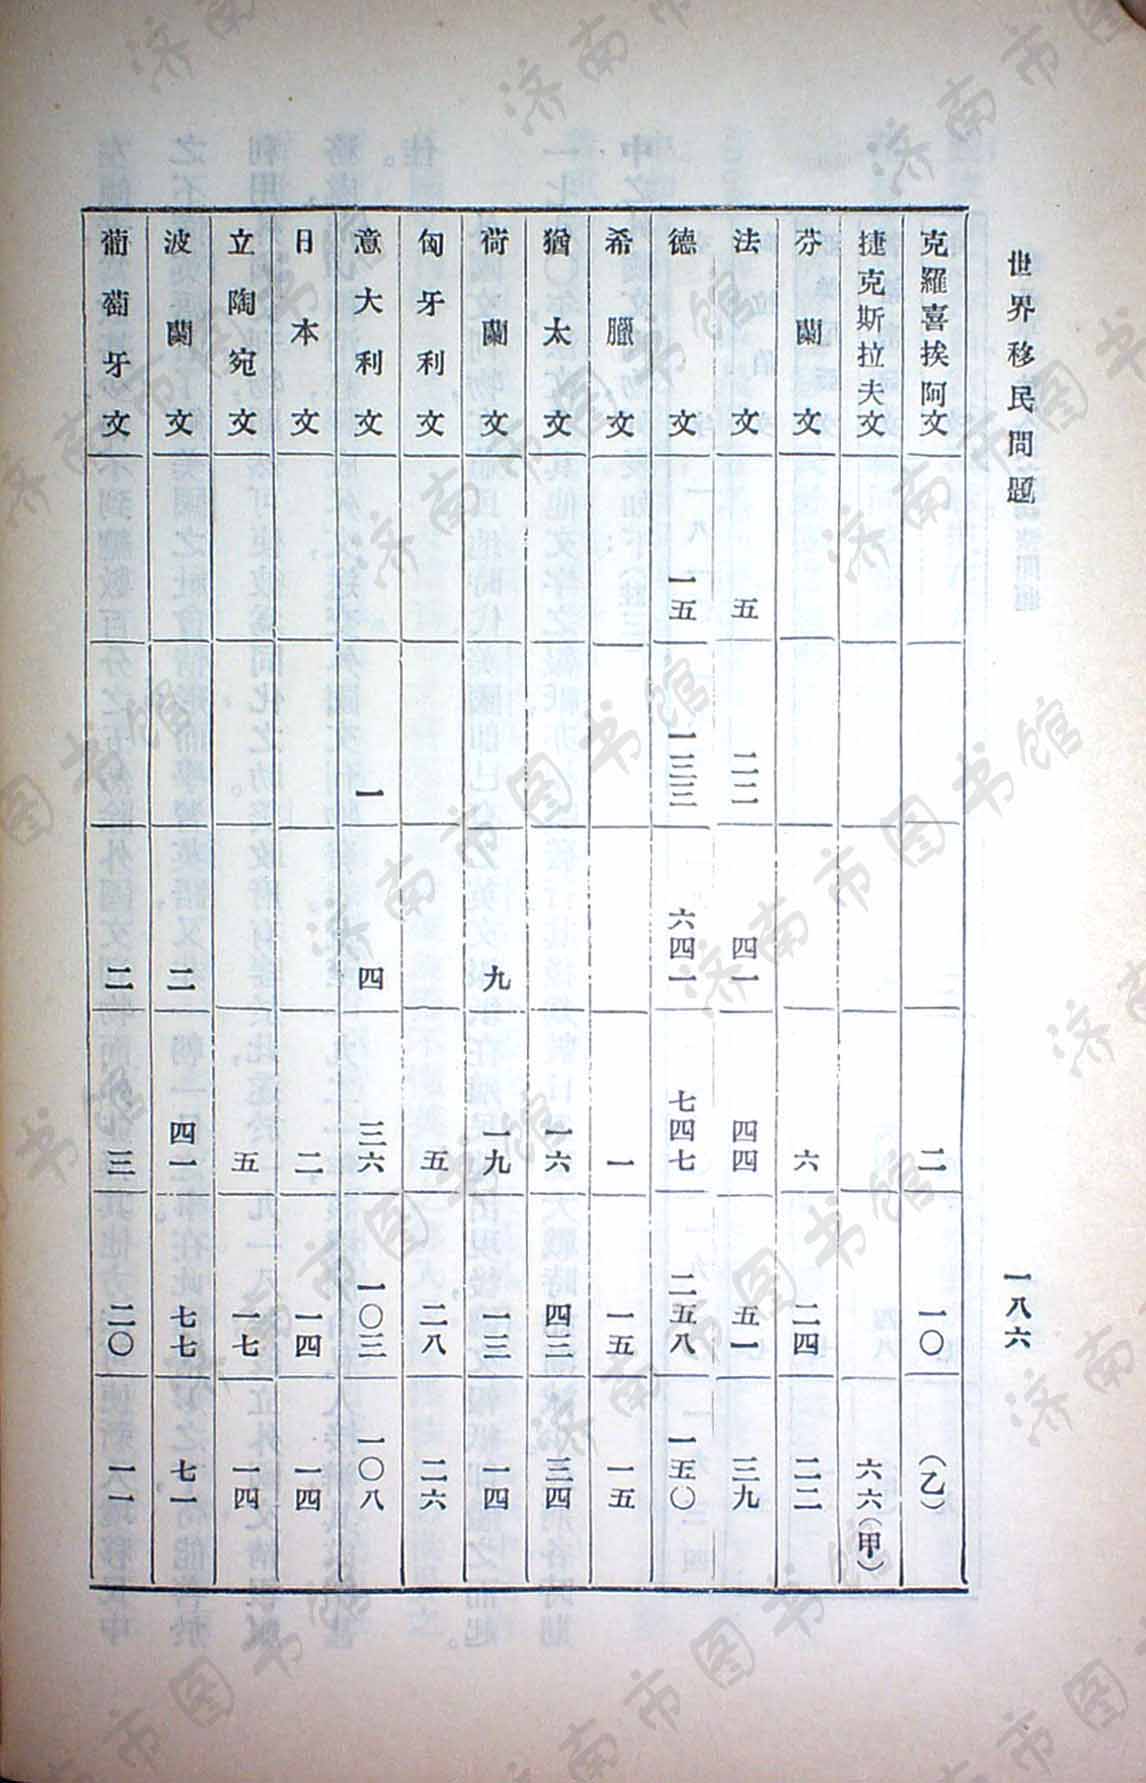 世界移民問題
一八六
克羅喜挨阿文 二 一〇 （乙）
捷克斯拉夫文 六六（甲）
芬蘭文 六 二四 二二
法文 五 二二 四一 四四 五一 三九
德文 一五 一三三 六四一 七四七 二五八 一五〇
希臘文 一 一五 一五
猶太文 一六 四三 三四
荷蘭文 九 一九 一三 一四
匈牙利文 五 二八 二六
意大利文 一 四 三六 一〇三 一〇八
日本文 二 一四 一四
立陶宛文 五 一七 一四
波蘭文 二 四一 七七 七一
葡萄牙文 二 三 二〇 一一
济南市图书馆